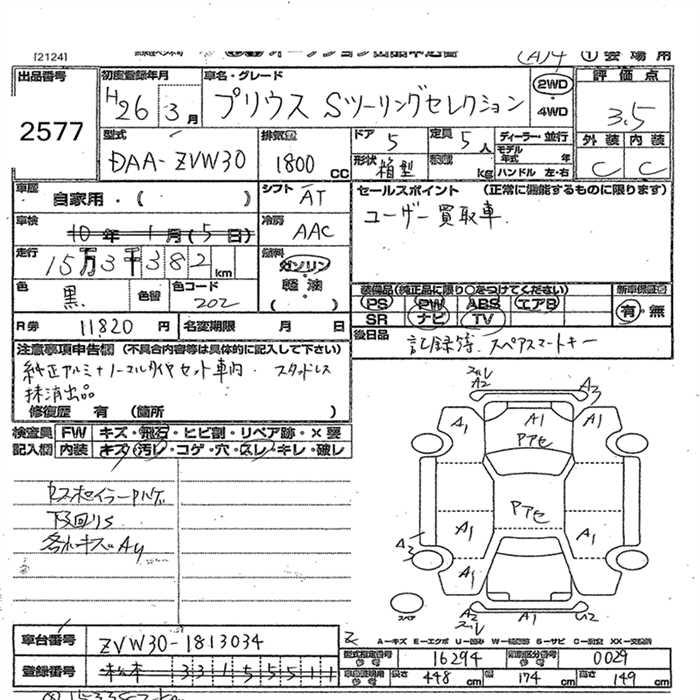 [2124]
① 会場用
出品番号 2577
初度登録年月 H26 3月
車名・グレード プリウス Sツーリングセレクション
2WD ・ 4WD
評価点 3.5
外装 C 内装 C
型式 DAA-ZVW30
排気量 1800 CC
ドア 5 定員 5人
形状 箱型 kg
ディーラー・並行
モデル年式 年
ハンドル 左・右
車歴 自家用・( )
シフト AT
セールスポイント (正常に機能するものに限ります)
ユーザー買取車
車検 10年1月(5日)
冷房 AAC
走行 15万3千382km
燃料 ガソリン・軽油 ( )
色 黒 色替 色コード 202
装備品(純正品に限り○をつけてください)
PS PW ABS エアB
SR ナビ TV
新車保証書 有・無
R券 11820円
名変期限 月 日
後日品 記録簿、スペアスマートキー
注意事項申告欄 (不具合内容等は具体的に記入して下さい)
純正アルミ+ノーマルタイヤセット車内・スタッドレス
抹消出品
修復歴 有 (箇所 )
検査員 FW キズ・飛石・ヒビ割・リペア跡・X要
記入欄 内装 キズ・汚レ・コゲ・穴・スレ・キレ・破レ
下回りS
各小キズA4
A2 A3
A1 A1 A1
Pアセ
Pアセ
A1 A1
A3
A1
A2 A1 U2
スペア
A-キズ E-エクボ U-凹み S-サビ
車台番号 ZVW30-1813034
型式指定番号 16294 類別区分番号 0029
登録番号 松本 331 5551 1
長さ 448 cm 幅 174 cm 高さ 149 cm